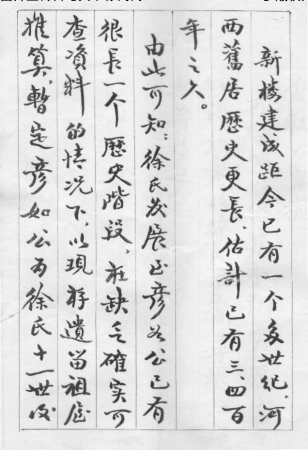 新楼建成距今已有一个多世纪，河
西舊居歷史更長，估計已有三、四百
年之久。
由此可知：徐氏发展至彦如公已有
很长一个歷史階段，在缺乏確实可
查資料的情况下，以現存遺留祖屋
推算，暫定彦如公为徐氏十一世後